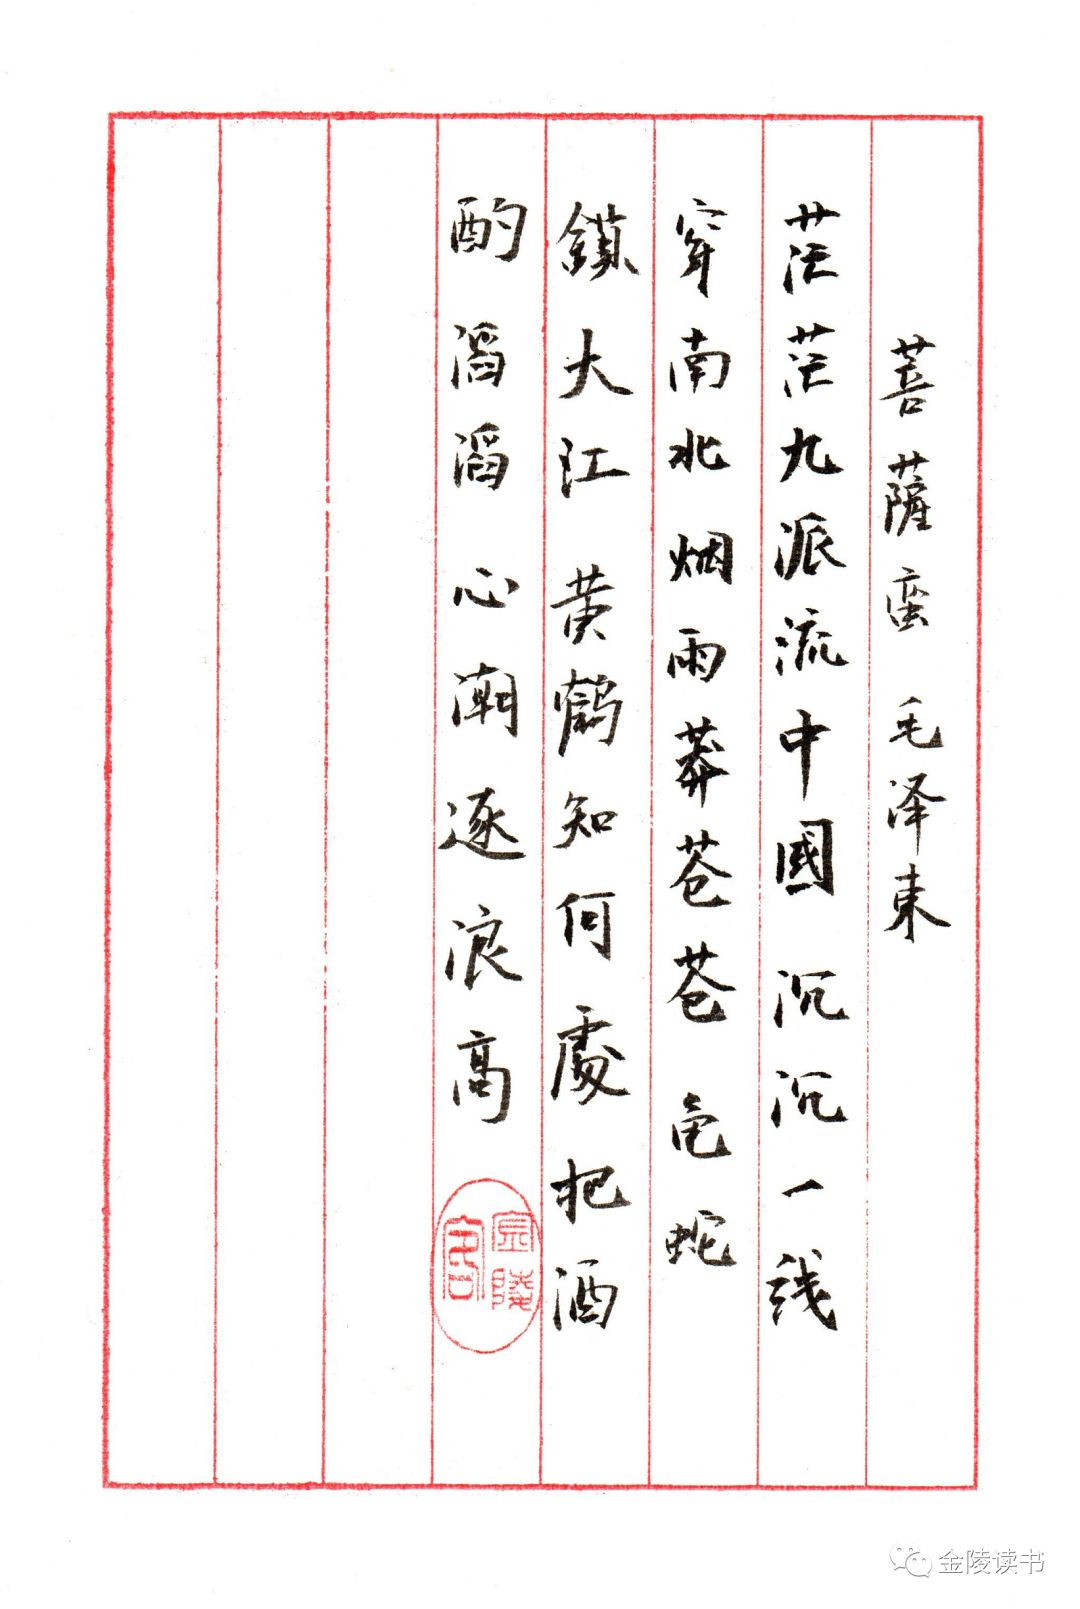 菩薩蛮 毛泽東
茫茫九派流中國 沉沉一线
穿南北烟雨莽苍苍 龟蛇
鎖大江 黄鹤知何處把酒
酌滔滔 心潮逐浪高
金陵客
金陵读书